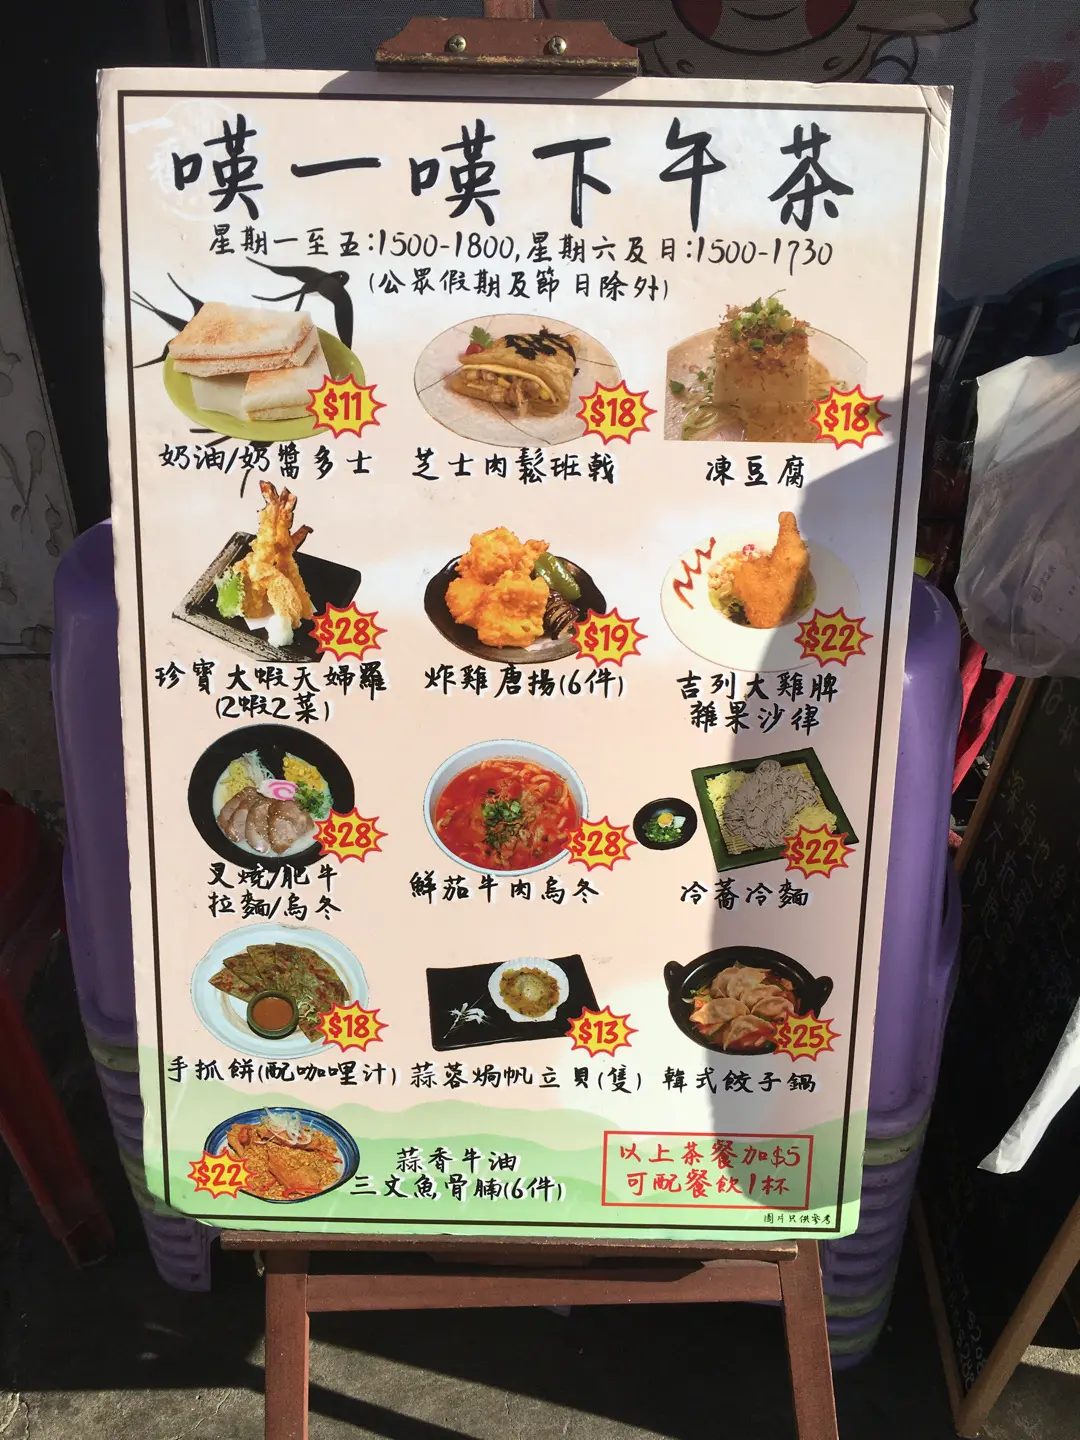 嘆一嘆下午茶
星期一至五:1500-1800,星期六及日:1500-1730
(公眾假期及節日除外)
$11
$18
$18
奶油/奶醬多士
芝士肉鬆班戟
凍豆腐
$28
$19
$22
珍寶大蝦天婦羅
(2蝦2菜)
炸雞唐揚(6件)
吉列大雞脾
雜果沙律
$28
$28
$22
叉燒/肥牛
拉麵/烏冬
鮮茄牛肉烏冬
冷蕎冷麵
$18
$13
$25
手抓餅(配咖哩汁)
蒜蓉焗帆立貝(隻)
韓式餃子鍋
$22
蒜香牛油
三文魚骨腩(6件)
以上茶餐加$5
可配餐飲1杯
圖片只供參考